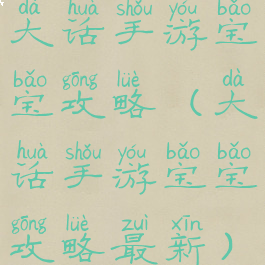 dà huà shǒu yóu bǎo
大话手游宝
bǎo gōng lüè dà
宝攻略（大
huà shǒu yóu bǎo bǎo
话手游宝宝
gōng lüè zuì xīn
攻略最新）